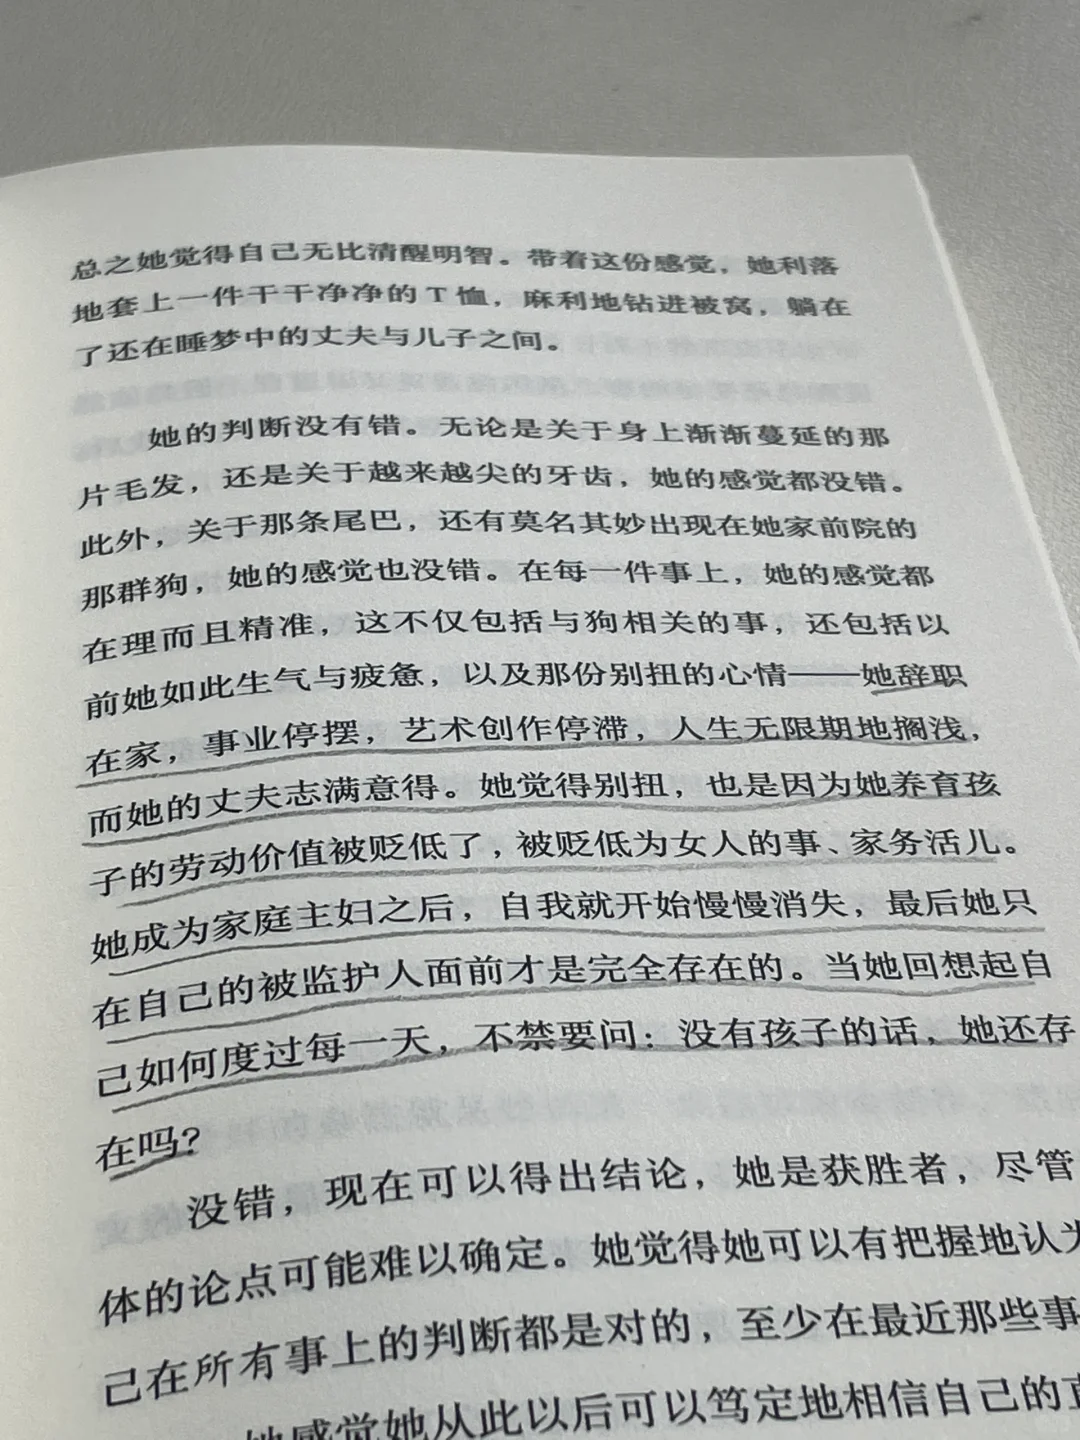 总之她觉得自己无比清醒明智。带着这份感觉，她利落
地套上一件干干净净的T恤，麻利地钻进被窝，躺在
了还在睡梦中的丈夫与儿子之间。
她的判断没有错。无论是关于身上渐渐蔓延的那
片毛发，还是关于越来越尖的牙齿，她的感觉都没错。
此外，关于那条尾巴，还有莫名其妙出现在她家前院的
那群狗，她的感觉也没错。在每一件事上，她的感觉都
在理而且精准，这不仅包括与狗相关的事，还包括以
前她如此生气与疲惫，以及那份别扭的心情——她辞职
在家，事业停摆，艺术创作停滞，人生无限期地搁浅，
而她的丈夫志满意得。她觉得别扭，也是因为她养育孩
子的劳动价值被贬低了，被贬低为女人的事、家务活儿。
她成为家庭主妇之后，自我就开始慢慢消失，最后她只
在自己的被监护人面前才是完全存在的。当她回想起自
己如何度过每一天，不禁要问：没有孩子的话，她还存
在吗？
没错，现在可以得出结论，她是获胜者，尽管
体的论点可能难以确定。她觉得她可以有把握地认为
己在所有事上的判断都是对的，至少在最近那些事
她感觉她从此以后可以笃定地相信自己的直